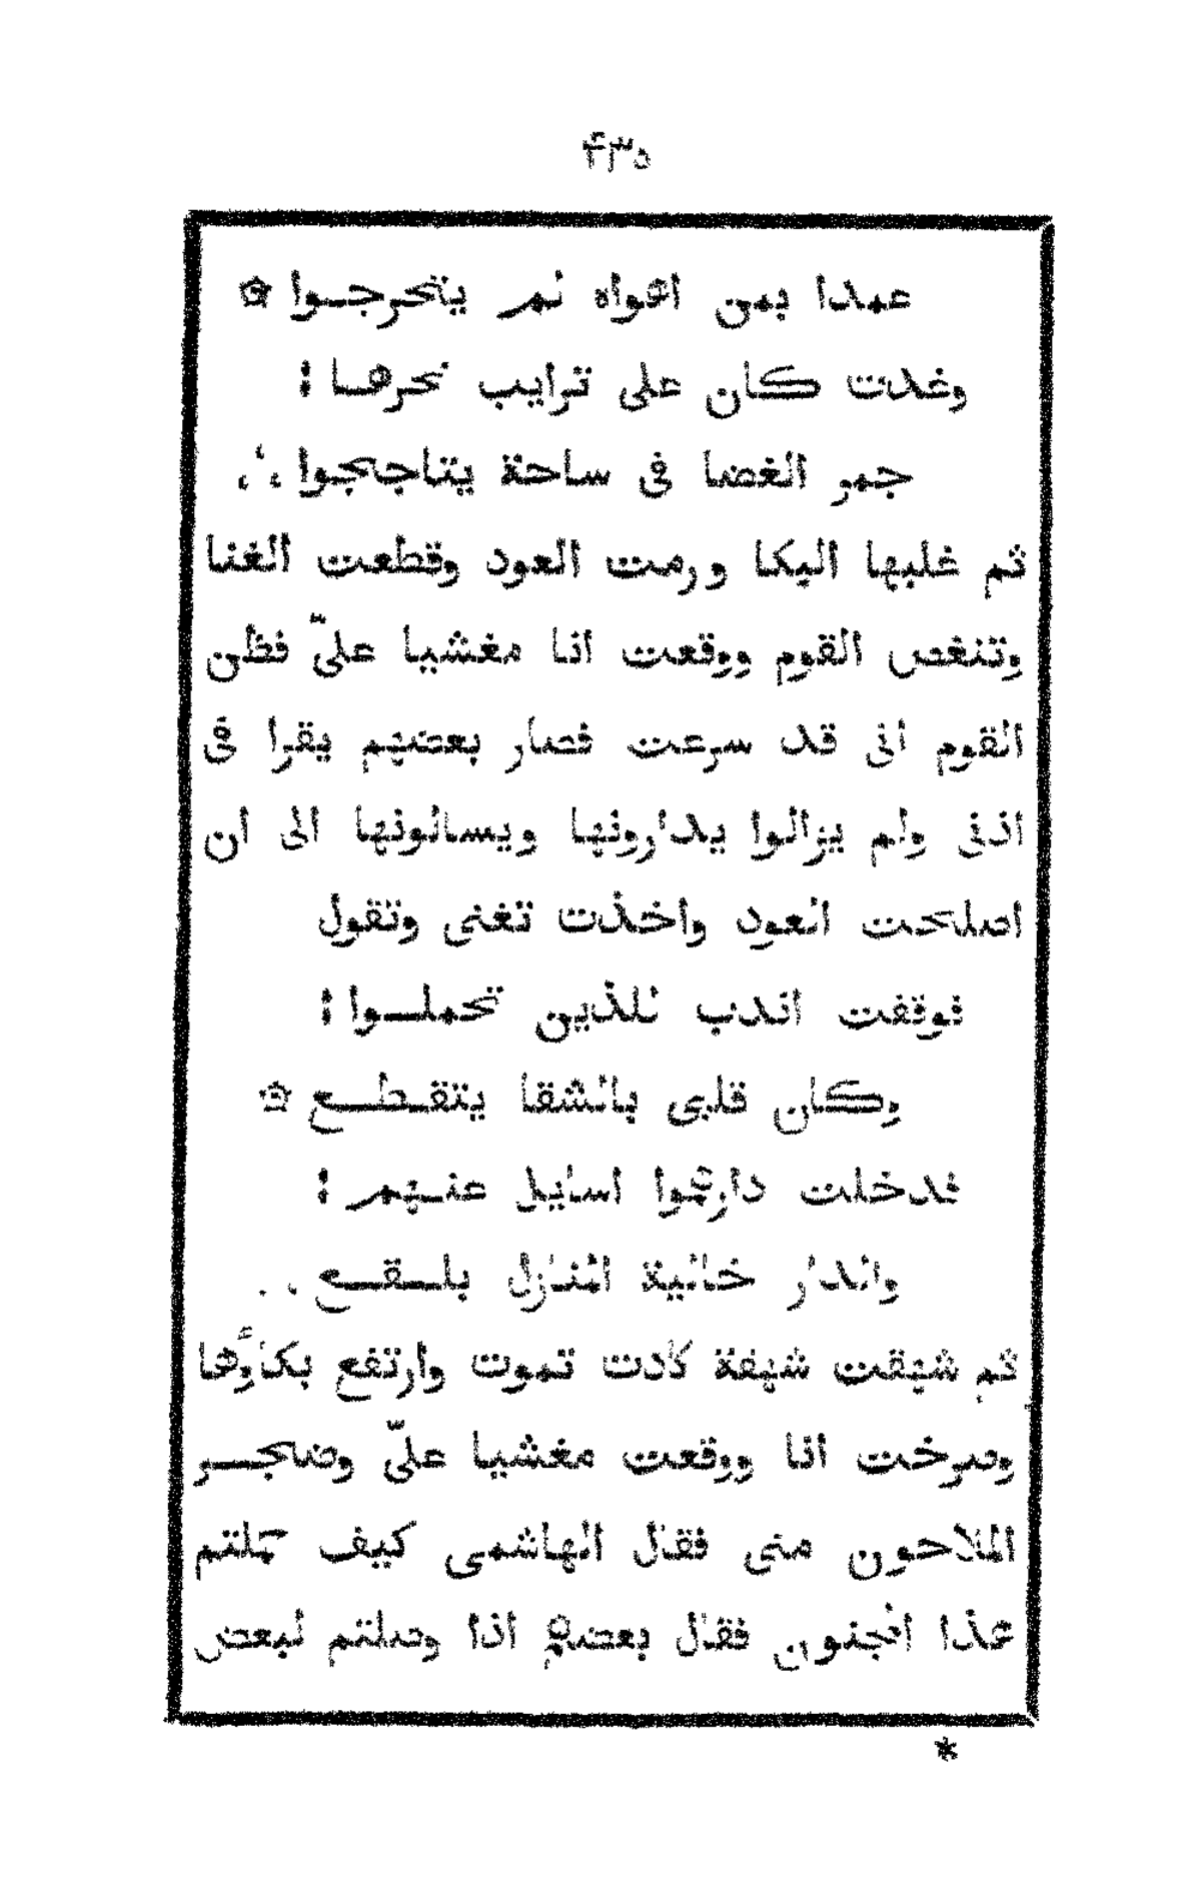 ۴۳۵
عمدا بمن اهواه لم يتحرجوا
وغدت كان على ترايب نحرها :
جمر الغضا فى ساحة يتاججوا
ثم غلبها البكا ورمت العود وقطعت الغنا
وتنغص القوم ووقعت انا مغشيا علىّ فظن
القوم انى قد سرعت فصار بعضهم يقرا فى
اذنى ولم يزالوا يدارونها ويسالونها الى ان
اصلحت العود واخذت تغنى وتقول
فوقفت اندب للذين تحملوا :
وكان قلبى بالشقا يتقطع
فدخلت دارهموا اسايل عنهم :
والدار خالية المنازل بلقع
ثم شهقت شهفة كادت تموت وارتفع بكاؤها
وصرخت انا ووقعت مغشيا علىّ وضجر
الملاحون منى فقال الهاشمى كيف حملتم
هذا المجنون فقال بعضهم اذا وصلتم لبعض
*